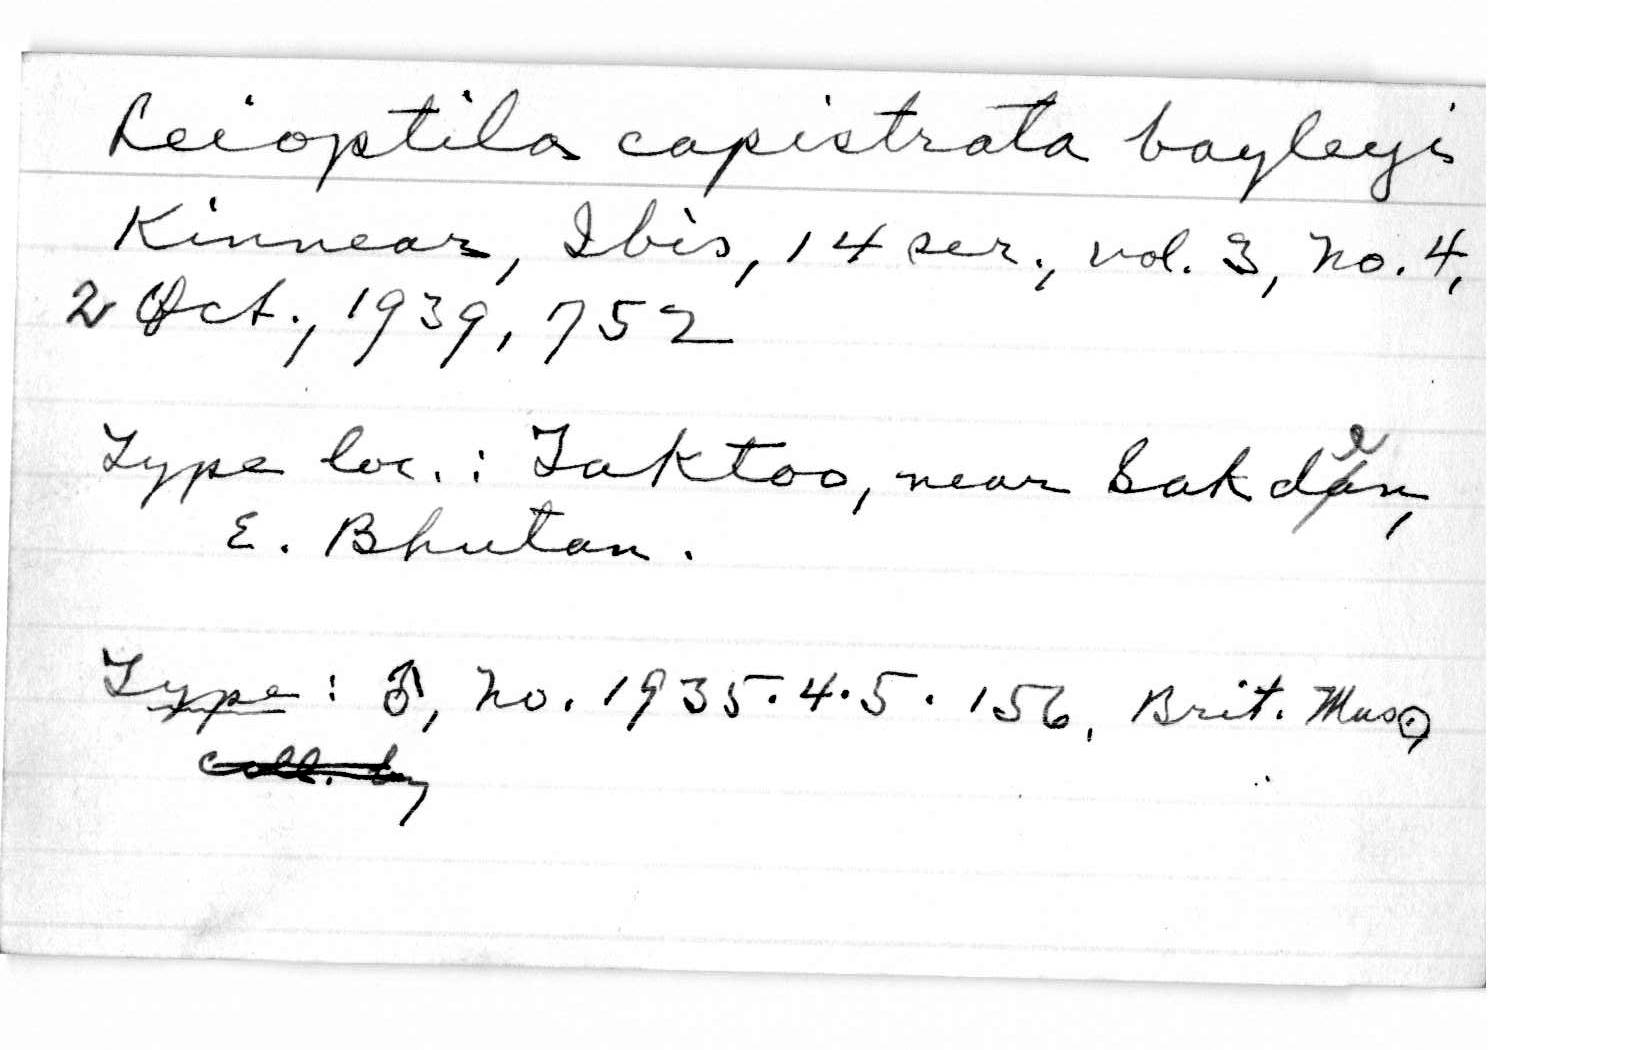 Leioptila capistrata bayleyi
Kinnear, Ibis, 14 ser., vol. 3, no. 4,
2 Oct., 1939, 752
Type loc.: Taktoo, near Sakden,
E. Bhutan.
Type: ♂, no. 1935.4.5.156, Brit. Mus.,
coll. by